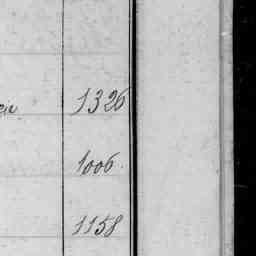 1326
1006.
1158